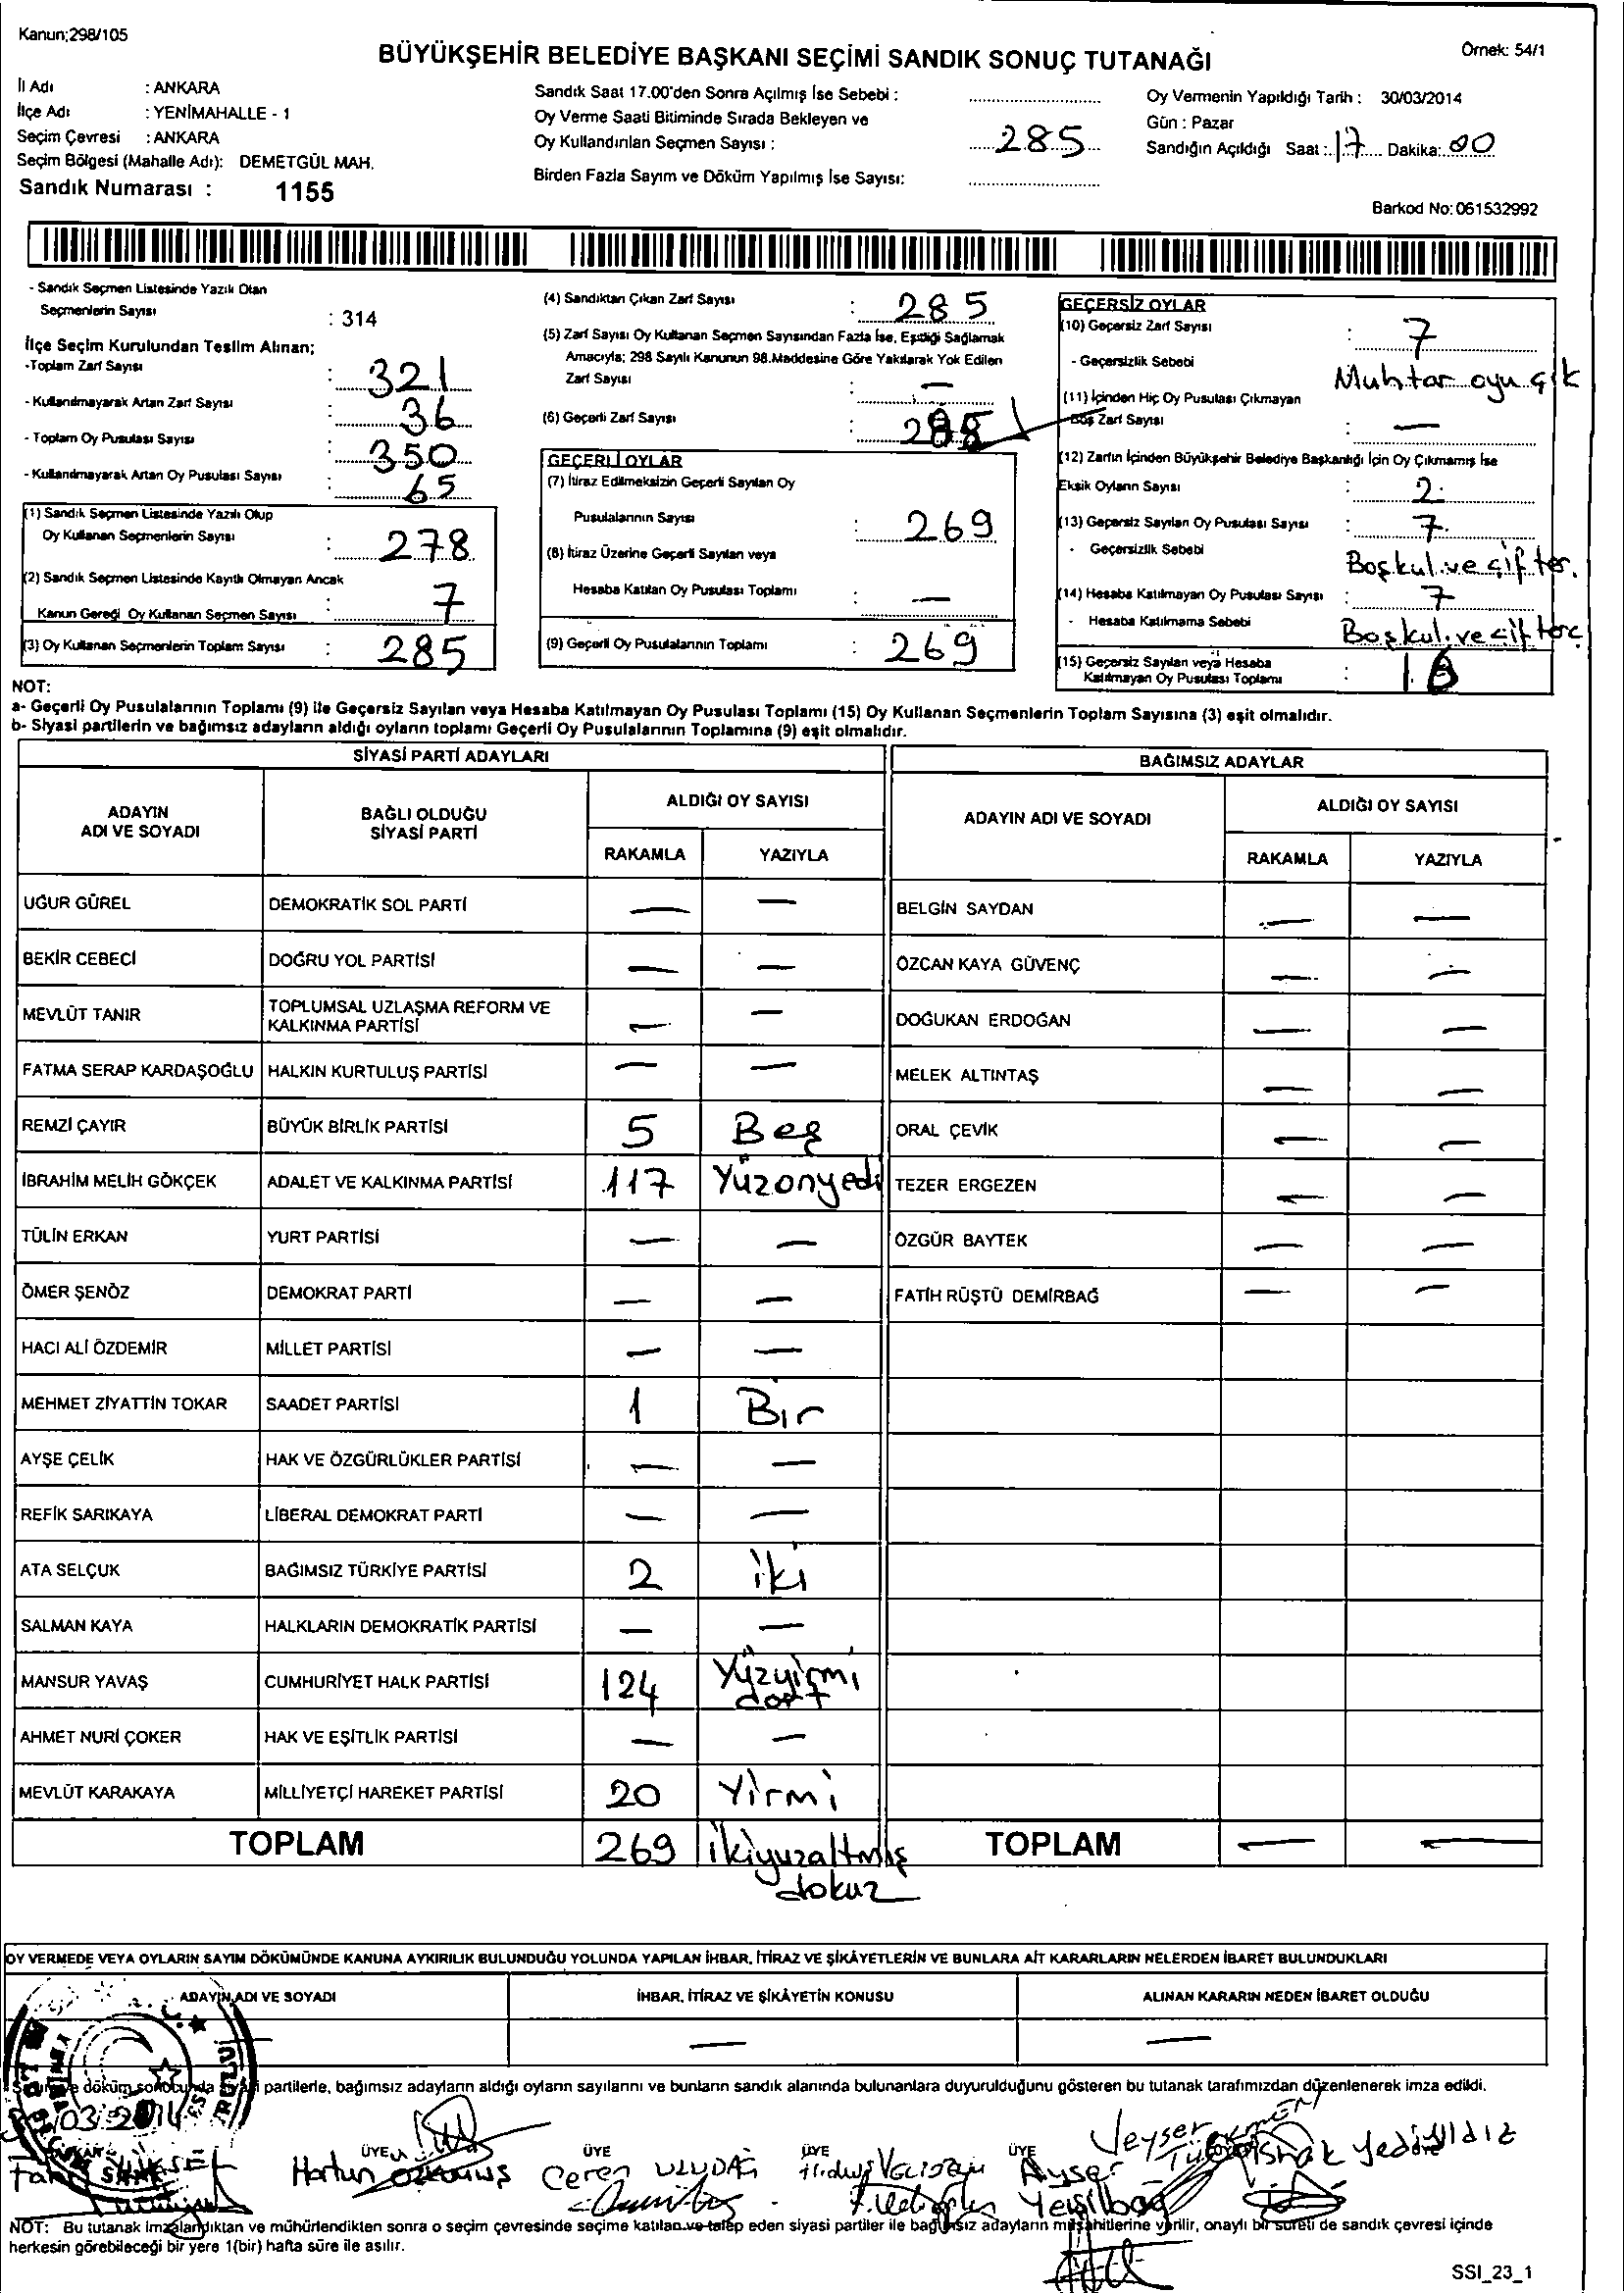 Kanun;298/105
BÜYÜKŞEHİR BELEDİYE BAŞKANI SEÇİMİ SANDIK SONUÇ TUTANAĞI
Örnek: 54/1
İl Adı : ANKARA
İlçe Adı : YENİMAHALLE - 1
Seçim Çevresi : ANKARA
Seçim Bölgesi (Mahalle Adı): DEMETGÜL MAH.
Sandık Numarası : 1155
Sandık Saat 17.00'den Sonra Açılmış İse Sebebi :
Oy Verme Saati Bitiminde Sırada Bekleyen ve
Oy Kullandırılan Seçmen Sayısı : 285
Birden Fazla Sayım ve Döküm Yapılmış İse Sayısı:
Oy Vermenin Yapıldığı Tarih : 30/03/2014
Gün : Pazar
Sandığın Açıldığı Saat : 17 Dakika: 00
Barkod No: 061532992
- Sandık Seçmen Listesinde Yazılı Olan
Seçmenlerin Sayısı : 314
İlçe Seçim Kurulundan Teslim Alınan;
-Toplam Zarf Sayısı : 321
- Kullanılmayarak Artan Zarf Sayısı : 36
- Toplam Oy Pusulası Sayısı : 350
- Kullanılmayarak Artan Oy Pusulası Sayısı : 65
(1) Sandık Seçmen Listesinde Yazılı Olup
Oy Kullanan Seçmenlerin Sayısı : 278
(2) Sandık Seçmen Listesinde Kayıtlı Olmayan Ancak
Kanun Gereği Oy Kullanan Seçmen Sayısı : 7
(3) Oy Kullanan Seçmenlerin Toplam Sayısı : 285
(4) Sandıktan Çıkan Zarf Sayısı : 285
(5) Zarf Sayısı Oy Kullanan Seçmen Sayısından Fazla İse, Eşitliği Sağlamak
Amacıyla; 298 Sayılı Kanunun 98.Maddesine Göre Yakılarak Yok Edilen
Zarf Sayısı : —
(6) Geçerli Zarf Sayısı : 285
GEÇERLİ OYLAR
(7) İtiraz Edilmeksizin Geçerli Sayılan Oy
Pusulalarının Sayısı : 269
(8) İtiraz Üzerine Geçerli Sayılan veya
Hesaba Katılan Oy Pusulası Toplamı : —
(9) Geçerli Oy Pusulalarının Toplamı : 269
GEÇERSİZ OYLAR
(10) Geçersiz Zarf Sayısı : 7
- Geçersizlik Sebebi Muhtar oyu çık
(11) İçinden Hiç Oy Pusulası Çıkmayan
Boş Zarf Sayısı : —
(12) Zarfın İçinden Büyükşehir Belediye Başkanlığı İçin Oy Çıkmamış İse
Eksik Oyların Sayısı : 2
(13) Geçersiz Sayılan Oy Pusulası Sayısı : 7
- Geçersizlik Sebebi Boşkul.ve çifter.
(14) Hesaba Katılmayan Oy Pusulası Sayısı : 7
- Hesaba Katılmama Sebebi Boşkul.ve çifterc
(15) Geçersiz Sayılan veya Hesaba
Katılmayan Oy Pusulası Toplamı : 16
NOT:
a- Geçerli Oy Pusulalarının Toplamı (9) ile Geçersiz Sayılan veya Hesaba Katılmayan Oy Pusulası Toplamı (15) Oy Kullanan Seçmenlerin Toplam Sayısına (3) eşit olmalıdır.
b- Siyasi partilerin ve bağımsız adayların aldığı oyların toplamı Geçerli Oy Pusulalarının Toplamına (9) eşit olmalıdır.
SİYASİ PARTİ ADAYLARI
BAĞIMSIZ ADAYLAR
ADAYIN ADI VE SOYADI
BAĞLI OLDUĞU SİYASİ PARTİ
ALDIĞI OY SAYISI
RAKAMLA YAZIYLA
ADAYIN ADI VE SOYADI
ALDIĞI OY SAYISI
RAKAMLA YAZIYLA
UĞUR GÜREL DEMOKRATİK SOL PARTİ — — BELGİN SAYDAN — —
BEKİR CEBECİ DOĞRU YOL PARTİSİ — — ÖZCAN KAYA GÜVENÇ — —
MEVLÜT TANIR TOPLUMSAL UZLAŞMA REFORM VE KALKINMA PARTİSİ — — DOĞUKAN ERDOĞAN — —
FATMA SERAP KARDAŞOĞLU HALKIN KURTULUŞ PARTİSİ — — MELEK ALTINTAŞ — —
REMZİ ÇAYIR BÜYÜK BİRLİK PARTİSİ 5 Beş ORAL ÇEVİK — —
İBRAHİM MELİH GÖKÇEK ADALET VE KALKINMA PARTİSİ 117 Yüzonyedi TEZER ERGEZEN — —
TÜLİN ERKAN YURT PARTİSİ — — ÖZGÜR BAYTEK — —
ÖMER ŞENÖZ DEMOKRAT PARTİ — — FATİH RÜŞTÜ DEMİRBAĞ — —
HACI ALİ ÖZDEMİR MİLLET PARTİSİ — —
MEHMET ZİYATTİN TOKAR SAADET PARTİSİ 1 Bir
AYŞE ÇELİK HAK VE ÖZGÜRLÜKLER PARTİSİ — —
REFİK SARIKAYA LİBERAL DEMOKRAT PARTİ — —
ATA SELÇUK BAĞIMSIZ TÜRKİYE PARTİSİ 2 iki
SALMAN KAYA HALKLARIN DEMOKRATİK PARTİSİ — —
MANSUR YAVAŞ CUMHURİYET HALK PARTİSİ 124 Yüzyirmi dört
AHMET NURİ ÇOKER HAK VE EŞİTLİK PARTİSİ — —
MEVLÜT KARAKAYA MİLLİYETÇİ HAREKET PARTİSİ 20 Yirmi
TOPLAM 269 ikiyuzaltmış dokuz TOPLAM — —
OY VERMEDE VEYA OYLARIN SAYIM DÖKÜMÜNDE KANUNA AYKIRILIK BULUNDUĞU YOLUNDA YAPILAN İHBAR, İTİRAZ VE ŞİKÂYETLERİN VE BUNLARA AİT KARARLARIN NELERDEN İBARET BULUNDUKLARI
ADAYIN ADI VE SOYADI İHBAR, İTİRAZ VE ŞİKÂYETİN KONUSU ALINAN KARARIN NEDEN İBARET OLDUĞU
— — —
döküm sonucunda siyasi partilerle, bağımsız adayların aldığı oyların sayılarını ve bunların sandık alanında bulunanlara duyurulduğunu gösteren bu tutanak tarafımızdan düzenlenerek imza edildi.
03.2014
ÜYE ÜYE ÜYE ÜYE
Hatun Ceren ULUDAĞ Ayser Yeşilbağ Veysel İshak Yediyıldız
NOT: Bu tutanak imzalandıktan ve mühürlendikten sonra o seçim çevresinde seçime katılan ve talep eden siyasi partiler ile bağımsız adayların müşahitlerine verilir, onaylı bir sureti de sandık çevresi içinde
herkesin görebileceği bir yere 1(bir) hafta süre ile asılır.
SSI_23_1